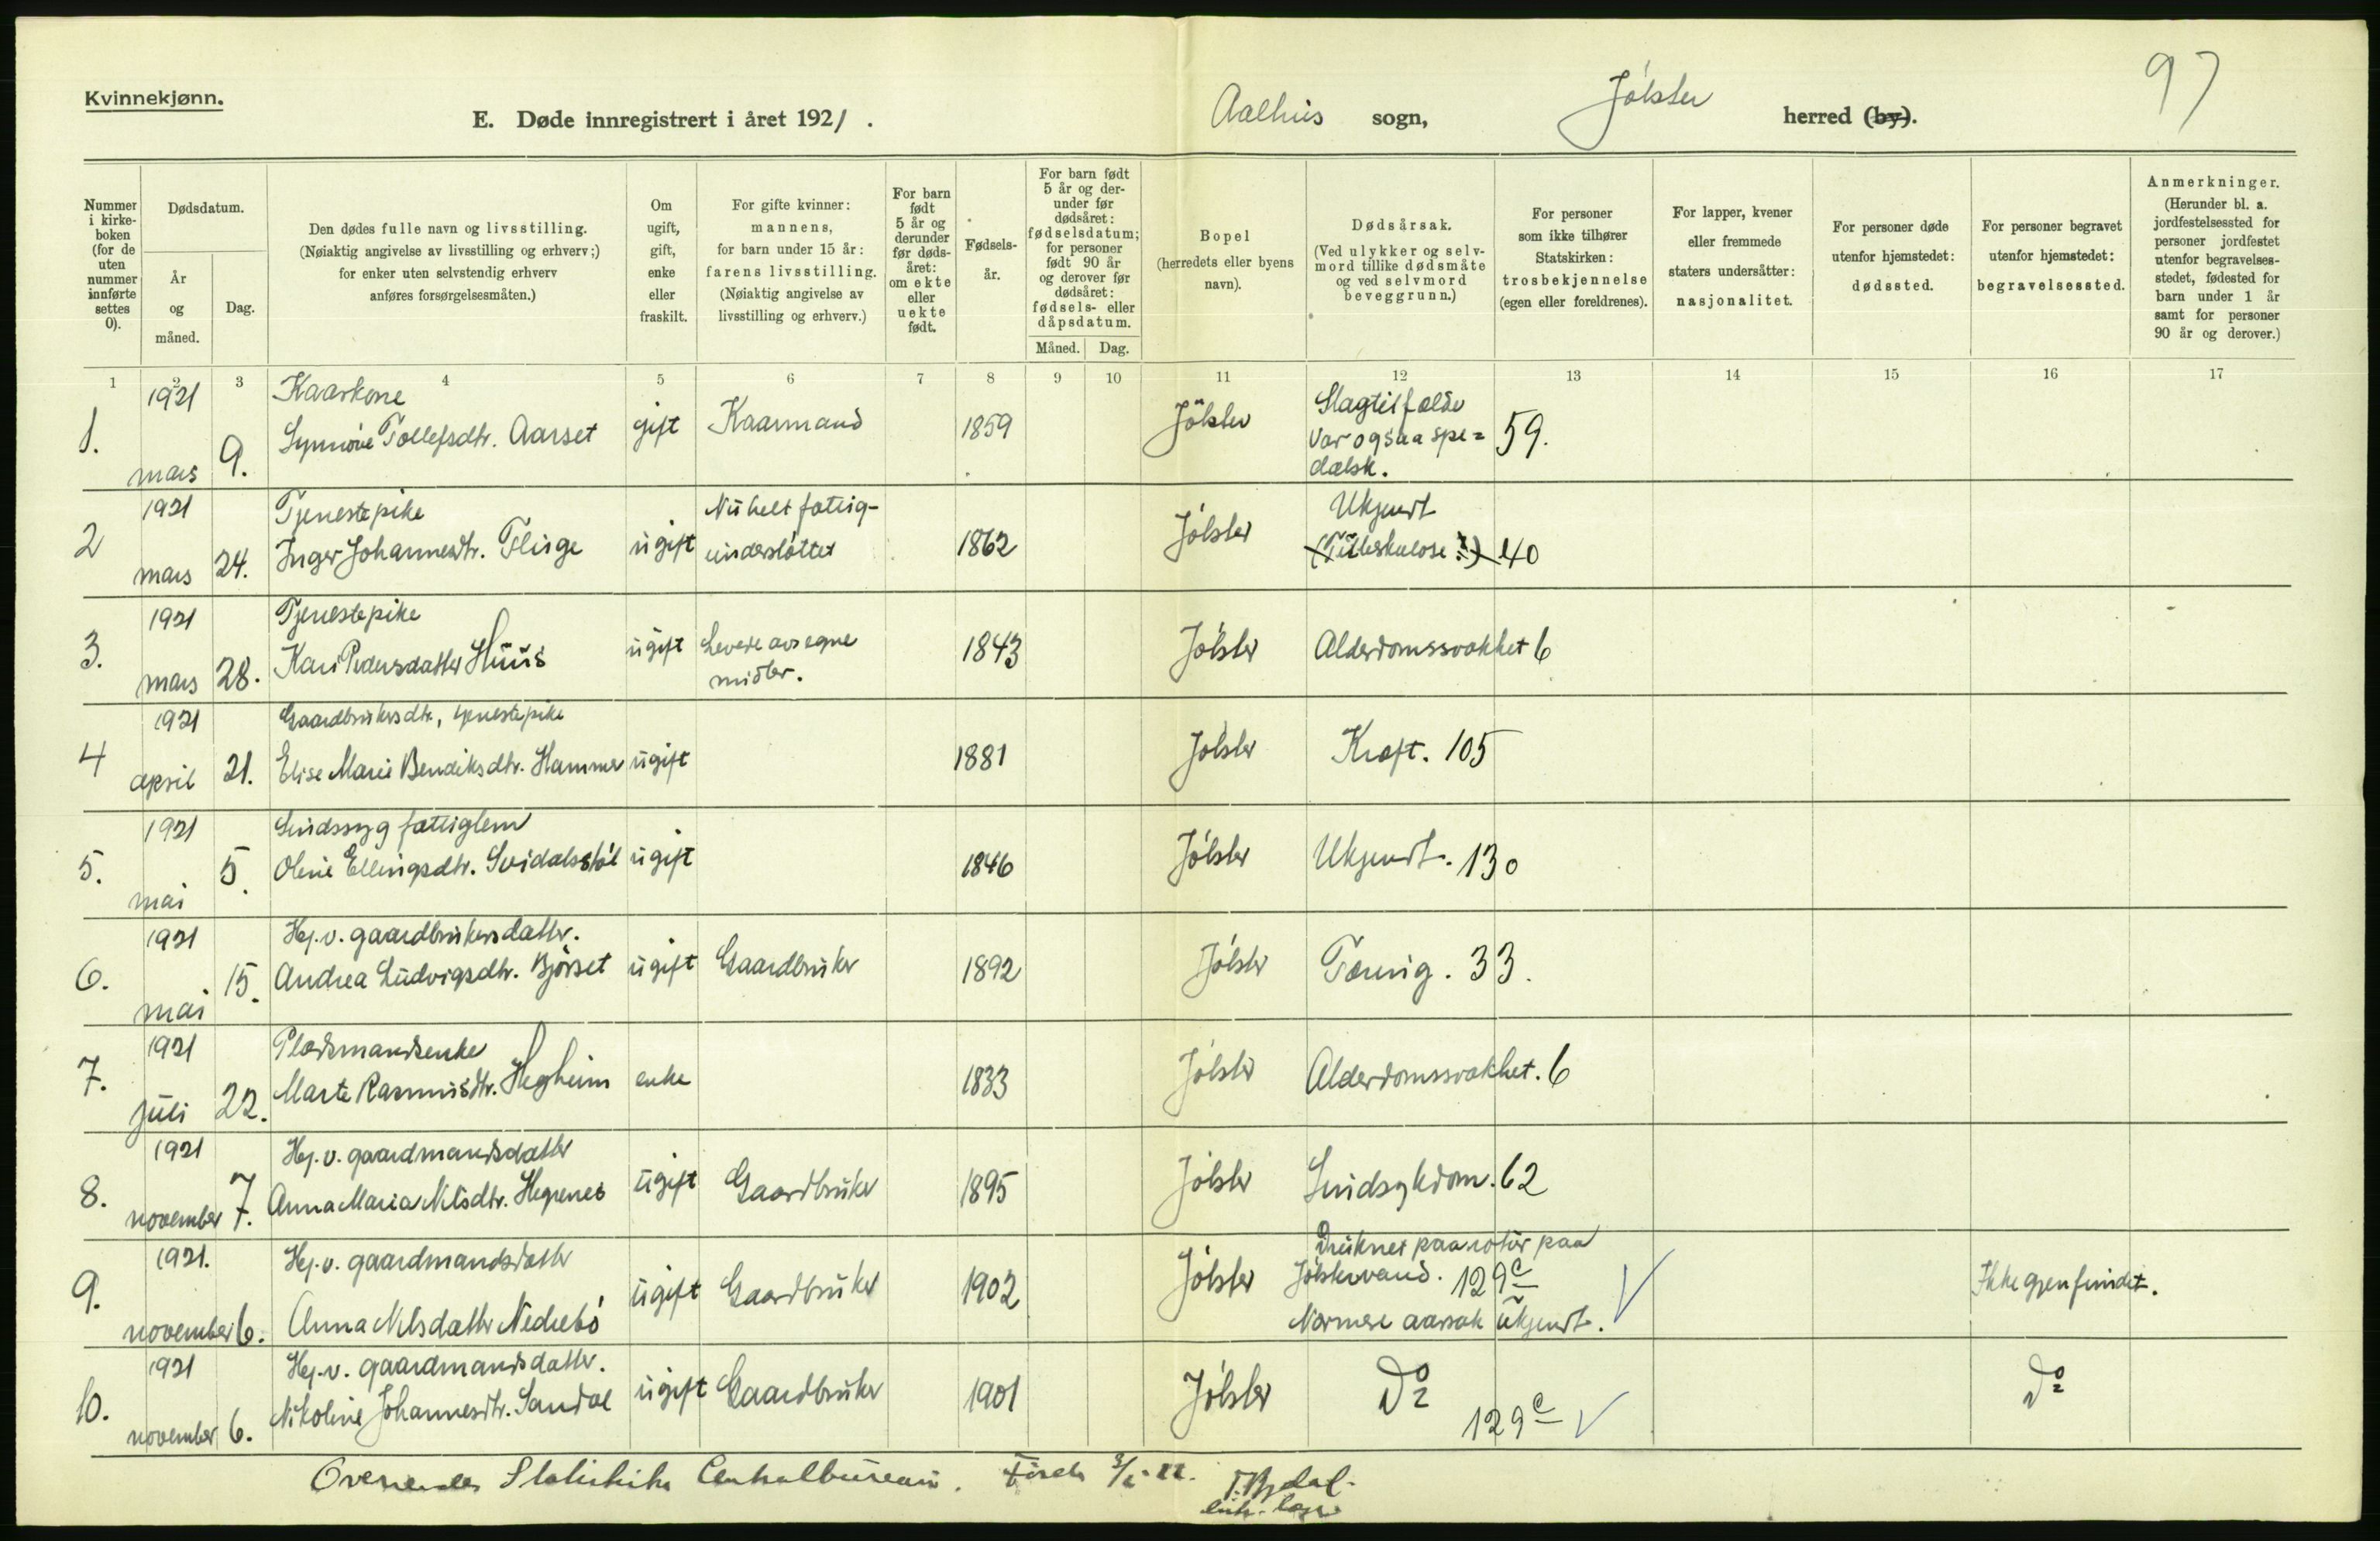 Kvinnekjønn.
E. Døde innregistrert i året 1921. Aalhus sogn, Jølster herred (by).
97
Nummer i kirkeboken (for de uten nummer innførte settes 0).
Dødsdatum.
År og måned.
Dag.
Den dødes fulle navn og livsstilling.
(Nøiaktig angivelse av livsstilling og erhverv;)
for enker uten selvstendig erhverv
anføres forsørgelsesmåten.)
Om ugift, gift, enke eller fraskilt.
For gifte kvinner:
mannens,
for barn under 15 år:
farens livsstilling.
(Nøiaktig angivelse av
livsstilling og erhverv.)
For barn født 5 år og derunder før dødsåret: om ekte eller uekte født.
Fødselsår.
For barn født 5 år og derunder før dødsåret: fødselsdatum; for personer født 90 år og derover før dødsåret: fødsels- eller dåpsdatum.
Måned. Dag.
Bopel
(herredets eller byens navn).
Dødsårsak.
(Ved ulykker og selvmord tillike dødsmåte og ved selvmord beveggrunn.)
For personer som ikke tilhører Statskirken: trosbekjennelse (egen eller foreldrenes).
For lapper, kvener eller fremmede staters undersåtter: nasjonalitet.
For personer døde utenfor hjemstedet: dødssted.
For personer begravet utenfor hjemstedet: begravelsessted.
Anmerkninger.
(Herunder bl. a. jordfestelsessted for personer jordfestet utenfor begravelsesstedet, fødested for barn under 1 år samt for personer 90 år og derover.)
1 2 3 4 5 6 7 8 9 10 11 12 13 14 15 16 17
1. 1921 mars 9. Kaarkone
Synnøve Tollefsdtr. Aarset gift Kaarmand 1859 Jølster Slagtilfelde
Var ogsaa spe=
dalsk. 59.
2 1921 mars 24. Tjenestepike
Inger Johannesdtr. Flinge ugift Nu helt fattig-
understøttet 1862 Jølster Ukjendt
(Tuberkulose?) 40
3. 1921 mars 28. Tjenestepike
Kari Pedersdatter Huus ugift Levere av egne
midler. 1843 Jølster Alderdomssvakhet 6
4 1921 april 21. Gaardbrukersdtr., tjenestepike
Elise Marie Bendiksdtr. Hammer ugift 1881 Jølster Kræft. 105
5. 1921 mai 5. Sindssyg fattiglem
Oline Ellingsdtr. Svidalsstøl ugift 1846 Jølster Ukjendt. 130
6. 1921 mai 15. Hj. v. gaardbrukersdatter.
Andrea Ludvigsdtr. Bjørset ugift Gaardbruker 1892 Jølster Tæring. 33.
7. 1921 juli 22. Pladsmandsenke
Marte Rasmusdtr. Hegheim enke 1833 Jølster Alderdomssvakhet. 6
8. 1921 november 7. Hj. v. gaardmandsdatter
Anna Maria Nilsdtr. Hegrenes ugift Gaardbruker 1895 Jølster Sindsykdom. 62
9. 1921. november 6. Hj. v. gaardmandsdatter
Anna Nilsdatter Nedrebø ugift Gaardbruker 1902 Jølster Druknet paa rotur paa
Jølstervand. 129c
Nærmere aarsak ukjendt. Ikke gjenfundet.
10. 1921 november 6. Hj. v. gaardmandsdatter.
Nikoline Johannesdtr. Sandal ugift Gaardbruker 1901 Jølster Do 129c Do
Oversendes Statistiske Centralbureau. Førde